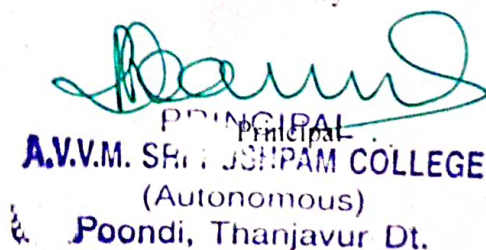 PRINCIPAL
Principal
A.V.V.M. SRI PUSHPAM COLLEGE
(Autonomous)
Poondi, Thanjavur Dt.